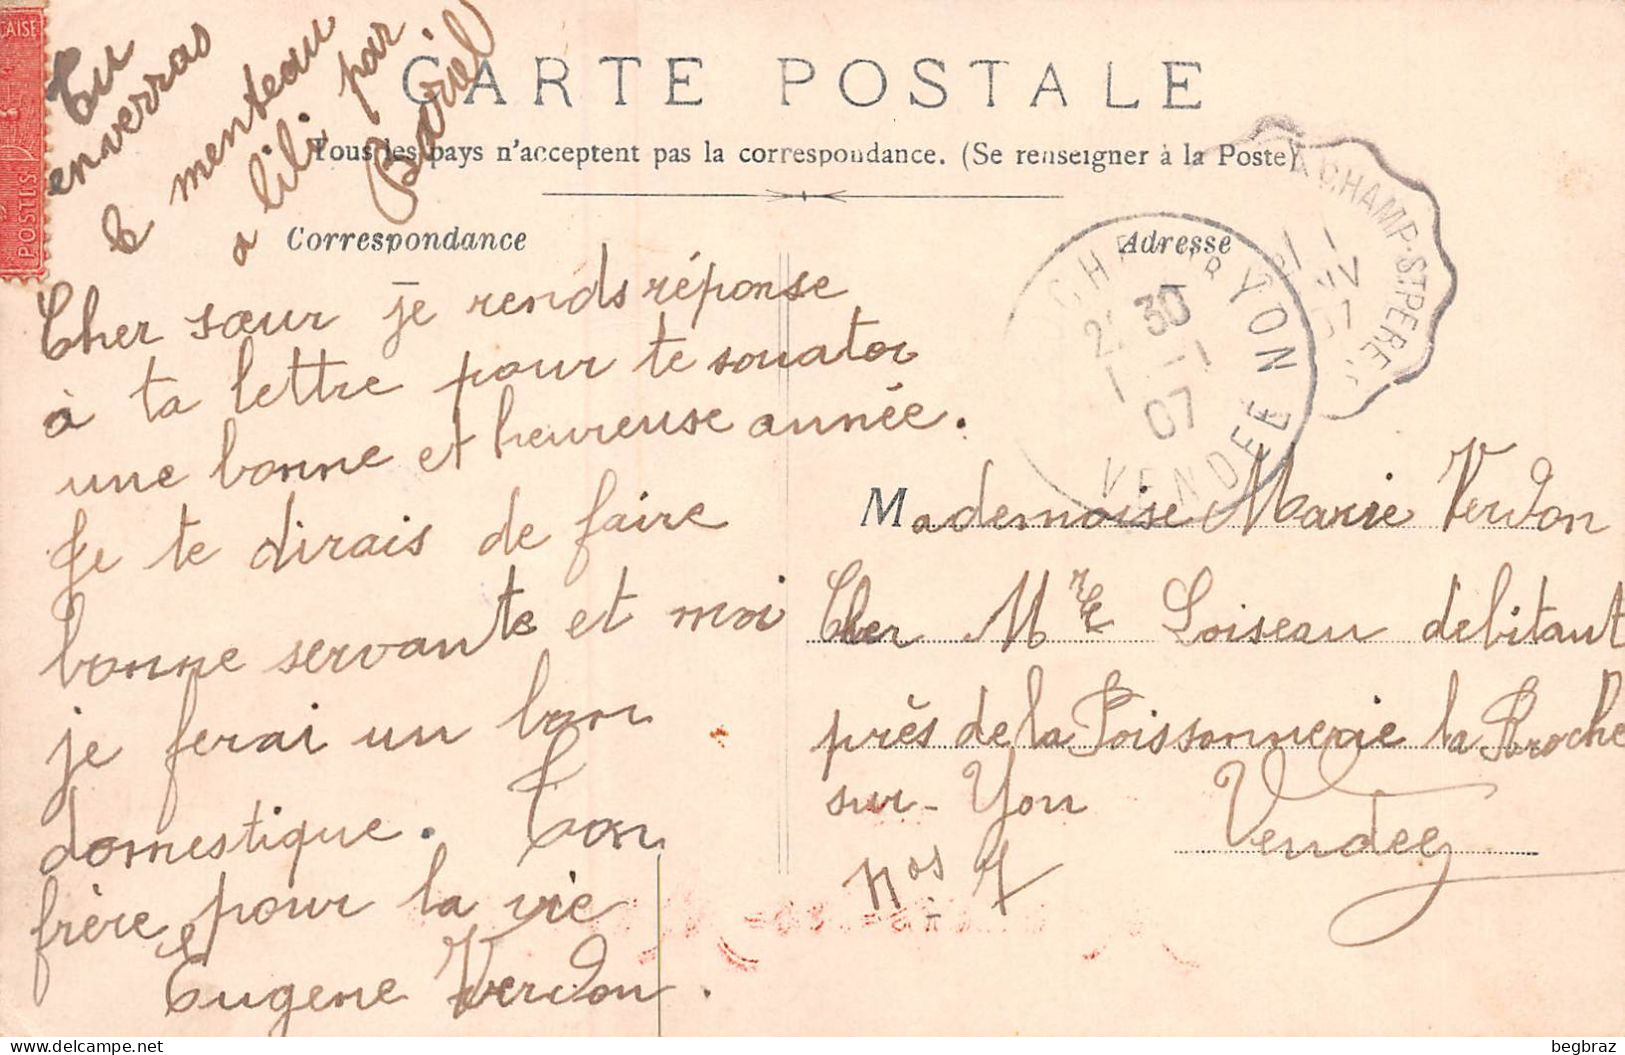 AISE
POSTES
Tu
enverras
le menteau
a lili par
Bariol
CARTE POSTALE
Tous les pays n'acceptent pas la correspondance. (Se renseigner à la Poste)
Correspondance
Adresse
Cher sœur je rends réponse
à ta lettre pour te souator
une bonne et heureuse année.
Je te dirais de faire
bonne servante et moi
je ferai un bon
domestique. Ton
frère pour la vie
Eugène Verdon.
CHE SUR YON
30
07
VENDÉE
CHAMP-ST PÈRE
07
Mademoise Marie Verdon
Cher Mre Loiseau debitant
près de la Poissonnerie la Roche
sur-Yon Vendee
nos 7
begbraz